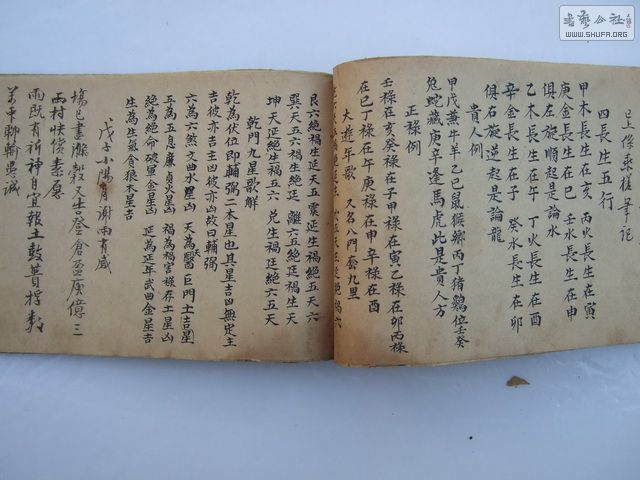 筆記
四長生五行
甲木長生在亥 丙火長生在寅
庚金長生在巳 壬水長生在申
俱左旋順起是論水
乙木長生在午 丁火長生在酉
辛金長生在子 癸水長生在卯
俱右旋逆起是論龍
貴人例
甲戊黃牛羊乙巳鼠猴鄉丙丁猪鷄位壬癸
兔蛇藏庚辛逢馬虎此是貴人方
正祿例
壬祿在亥癸祿在子甲祿在寅乙祿在卯丙祿
在巳丁祿在午庚祿在申辛祿在酉
大遊年歌 又名八門套九里
艮六絕禍生延天五震延生禍絕五天六
巽天五六禍生絕延 離六五絕延禍生天
坤天延絕生禍五六 兌生禍延絕六五天
乾門九星歌解
乾為伏位即輔弼二木星也其星吉凶無定主
吉彼亦吉主凶彼亦凶故曰輔弼
六為六煞文曲水星凶 天為天醫巨門土吉星
五為五鬼廉貞火星凶 禍為禍害祿存土星凶
絕為絕命破軍金星凶 延為延年武曲金星吉
生為生氣貪狼木星吉
戊子小陽月謝雨有感
場已畫滌穀又告登倉盈庾億三
村快償素愿
雨既有祈神自宜報土鼓蕢桴
中聊輸誠
書藝公社
WWW.SHUFA.ORG